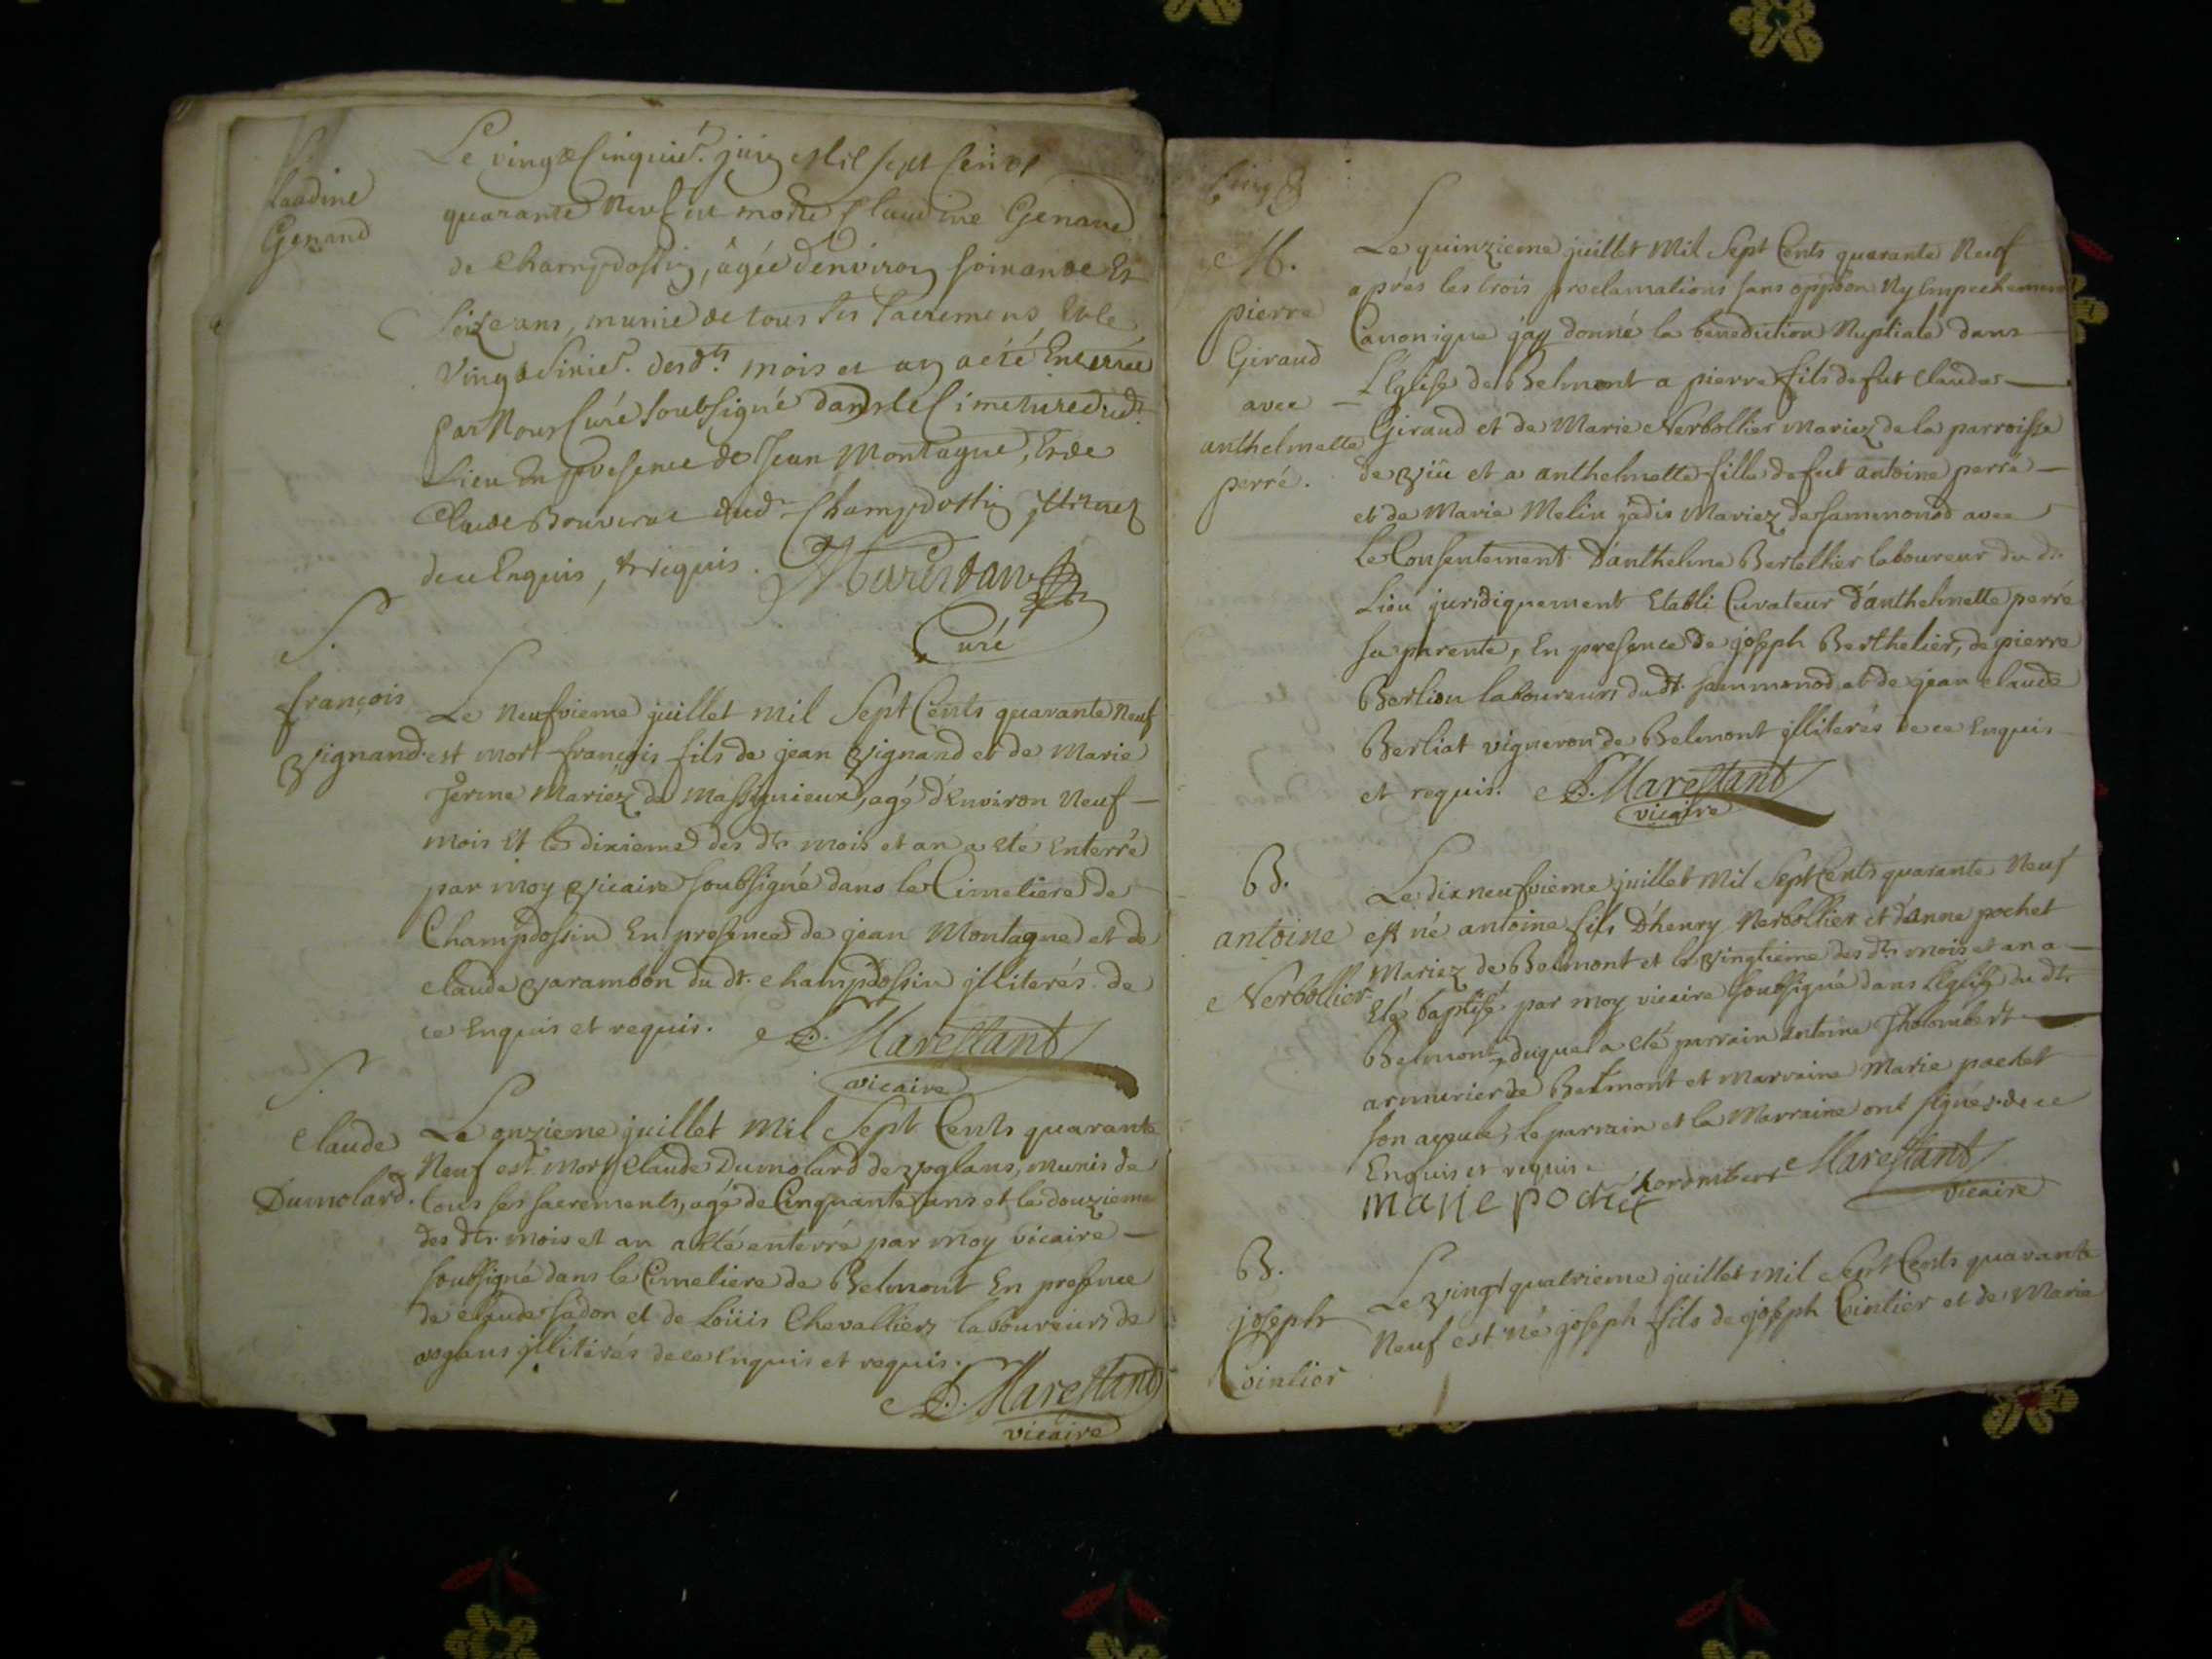 Claudine
Genand
Le vingt Cinquie. juin Mil sept Cent
quarante Neuf est morte Claudine Genand
de Champdossin, âgée d'environ soixante Et
seize ans, munie de tous ses sacremens Et le
vingt sixie. desd.ts mois et an a été Enterrée
par Nous Curé soubsigné dans le Cimetiere dud.
Lieu En presence de Jean Montagne, Et de
Claude Bouverat dud. Champdossin jlliterez
de ce Enquis, et requis.
Curé
S.
françois
Vignand
Le neufvieme juillet mil Sept Cents quarante Neuf
est mort françois fils de jean Vignand et de Marie
Jerme Mariéz de Massignieux, agé d'Environ Neuf
mois Et le dixieme des dts mois et an a eté Enterré
par moy Vicaire soubsigné dans le Cimetiere de
Champdossin En presence de jean Montagne et de
claude Varambon du dt. champdossin jlliterés de
ce Enquis et requis. D. Marestant
vicaire
S.
Claude
Dumolard.
Le onzieme juillet Mil Sept Cents quarante
Neuf est mort Claude Dumolard de voglans, munis de
tous ses sacrements, agé de Cinquante ans et le douzieme
des dts. mois et an a eté enterré par moy vicaire
soubsigné dans le Cimetiere de Belmont En presence
de claude sadon et de Loüis Chevallier laboureurs de
voglans jlliterés de ce Enquis et requis.
D. Marestant
vicaire
M.
pierre
Giraud
avec
anthelmette
perré.
Le quinzieme juillet Mil Sept Cents quarante Neuf
aprés les trois proclamations sans oppôon Ny Empechement
Canonique jay donné la benediction Nuptiale dans
L'Eglise de Belmont a pierre fils de fut Claude
Giraud et de Marie Nerbollier Mariez de la parroisse
de Viü et a anthelmette fille de fut antoine perré
et de Marie Melin jadis Mariez de sammonod avec
Le Consentement d'anthelme Bertellier laboureur du dt.
Lieu juridiquement Etabli Curateur d'anthelmette perré
sa parente, En presence de joseph Berthelier, de pierre
Berlion laboureurs du dt. sammonod et de jean claude
Berliat vigneron de Belmont jlliterés de ce Enquis
et requis. D. Marestant
vicaire
B.
antoine
Nerbollier
Le dix neufvieme juillet Mil Sept Cents quarante Neuf
est né antoine fils D'henry Nerbollier et d'anne pochet
Mariez de Belmont et le vingtieme des dts mois et an a
Eté baptisé par moy vicaire soubsigné dans l'Eglise du dt.
Belmont, duquel a eté parrain antoine Tholombert
armurier de Belmont et Marraine Marie pochet
son ayeule, Le parrain et la Marraine ont signés de ce
Enquis et requis.
marie pochet Marestant
vicaire
B.
joseph
Cointier
Le vingt quatrieme juillet Mil Sept Cents quarante
Neuf est né joseph fils de joseph Cointier et de Marie